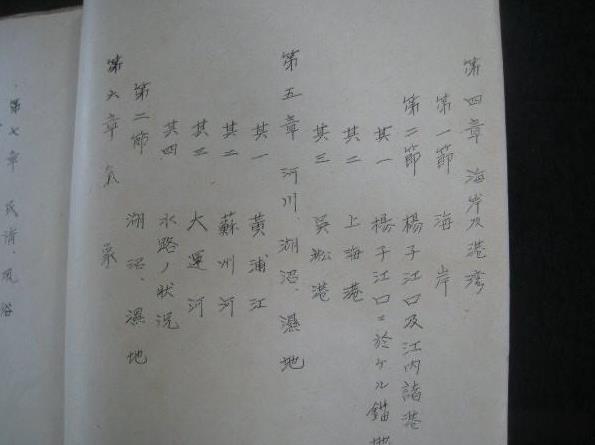 第四章 海岸及港湾
第一節 海岸
第二節 楊子江口及江内諸港
其一 楊子江口ニ於ケル錨地
其二 上海港
其三 吳淞港
第五章 河川、湖沼、濕地
其一 黄浦江
其二 蘇州河
其三 大運河
其四 水路ノ狀況
第二節 湖沼、濕地
第六章 気象
第七章 民情、風俗